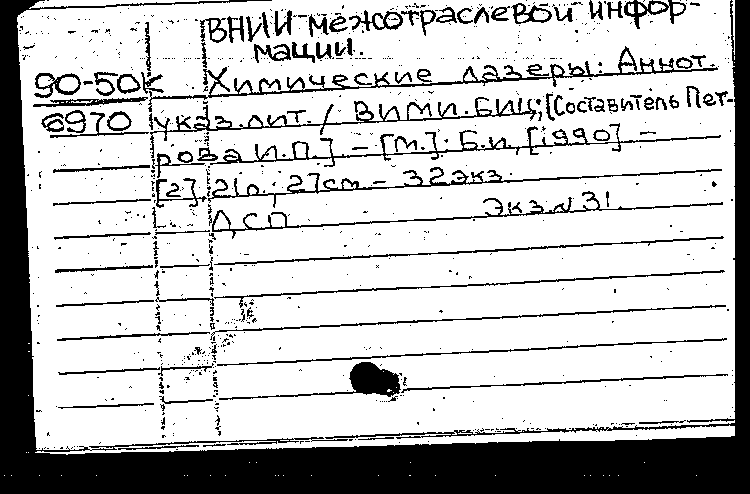 ВНИИ межотраслевой инфор-
мации.
90-50К Химические лазеры: Аннот.
6970 указ.лит. / ВИМИ.БИЦ; [Составитель Пет-
рова И.П.] – [М.]: Б.и, [1990] –
[2], 21л.; 27см – 32экз.
ДСП Экз.N 31.